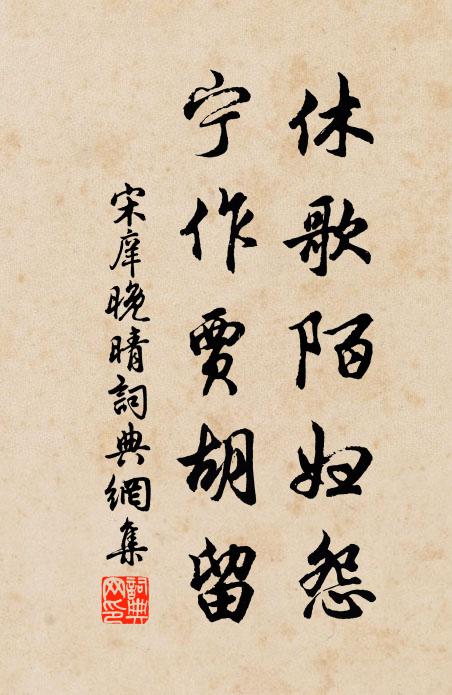 休歌陌妇怨
宁作贾胡留
宋庠晚晴詞典網集
詞典网印